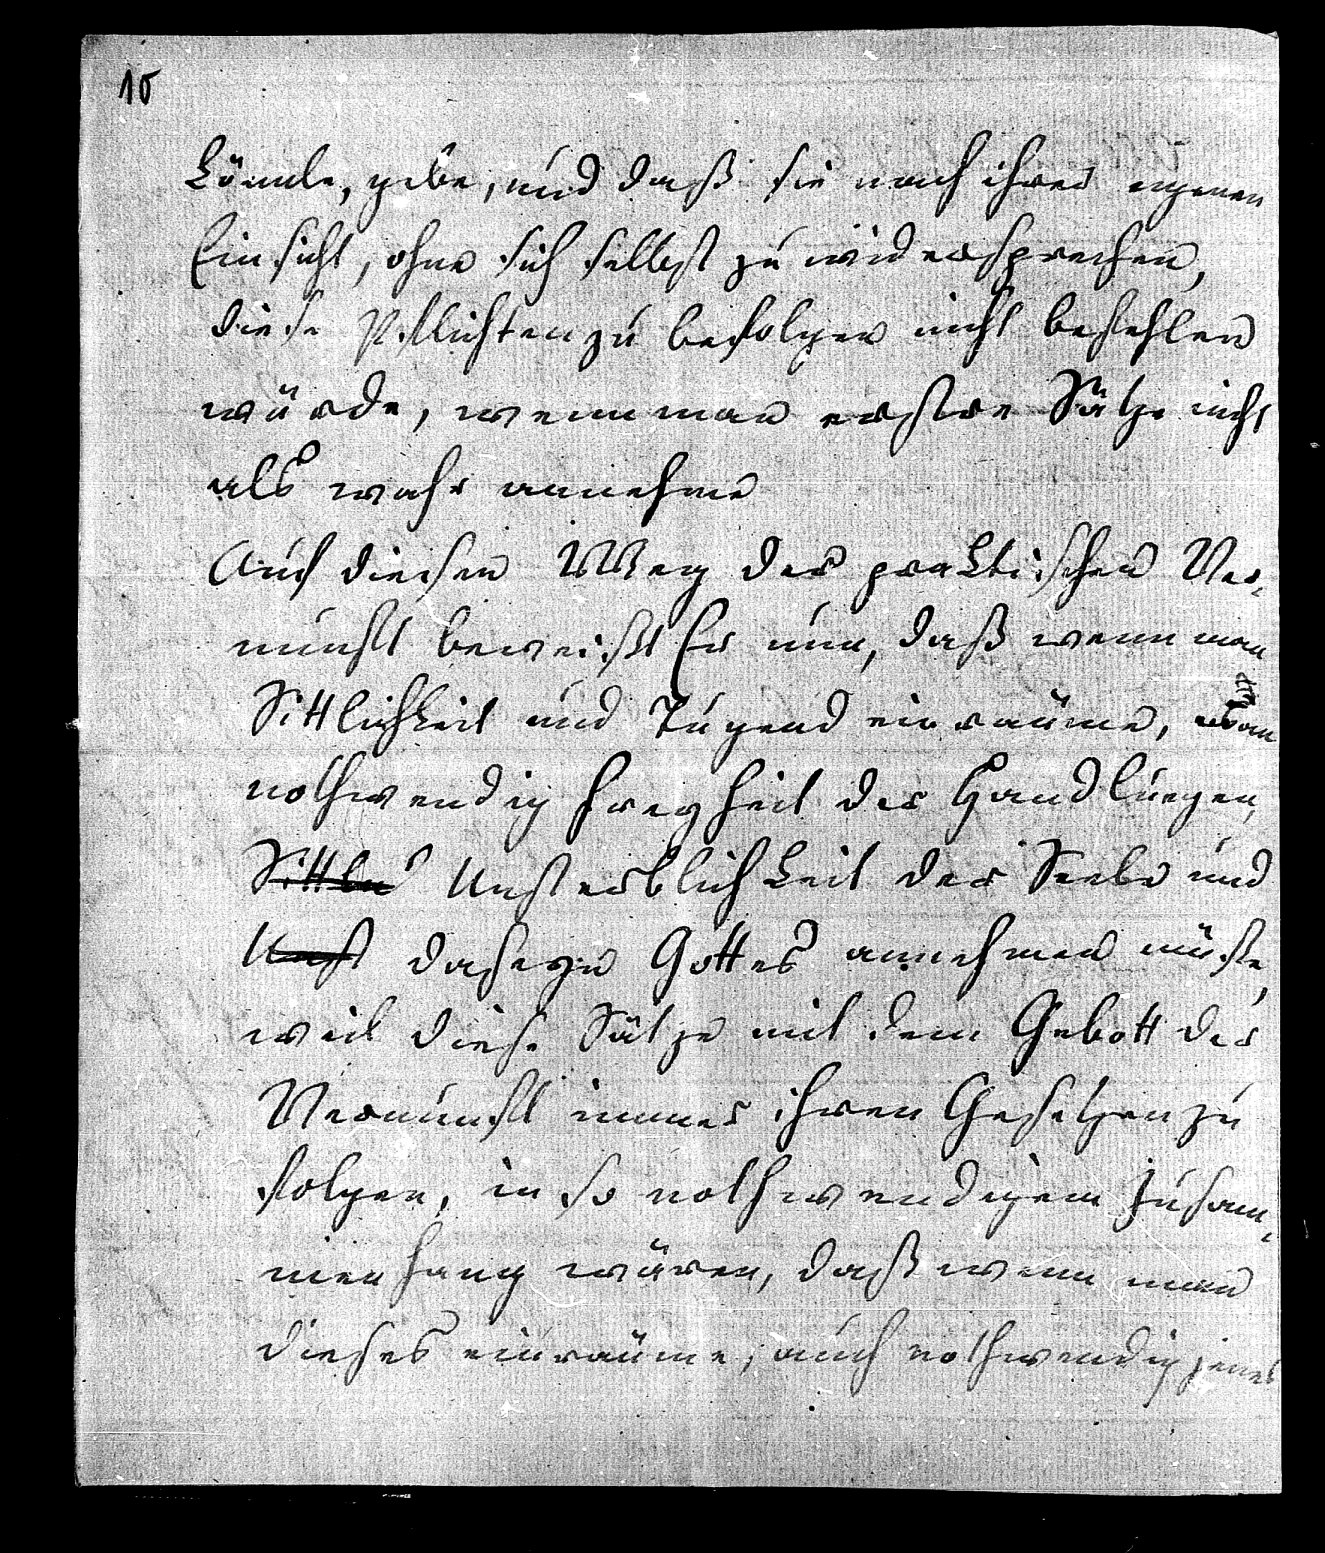 10
könnte, gebe, und daß sie nach ihrer eigenen
Einsicht, ohne sich selbst zu widersprechen,
diese Pflichten zu befolgen nicht befehlen
würde, wenn man erstere Sätze nicht
als wahr annehme
Auf diesem Weg der praktischen Ver-
nunft beweißt Er nun, daß wenn man
Sittlichkeit und Tugend einräume, man
nothwendig Freyheit der Handlungen,
Sittli Unsterblichkeit der Seele und
Unst daseyn Gottes annehmen müße,
weil diese Sätze mit dem Gebott der
Vernunft immer ihren Gesetzen zu
folgen, in so nothwendigem Zusam-
menhang wären, daß wenn man
dieses einräume, auch nothwendig jenes